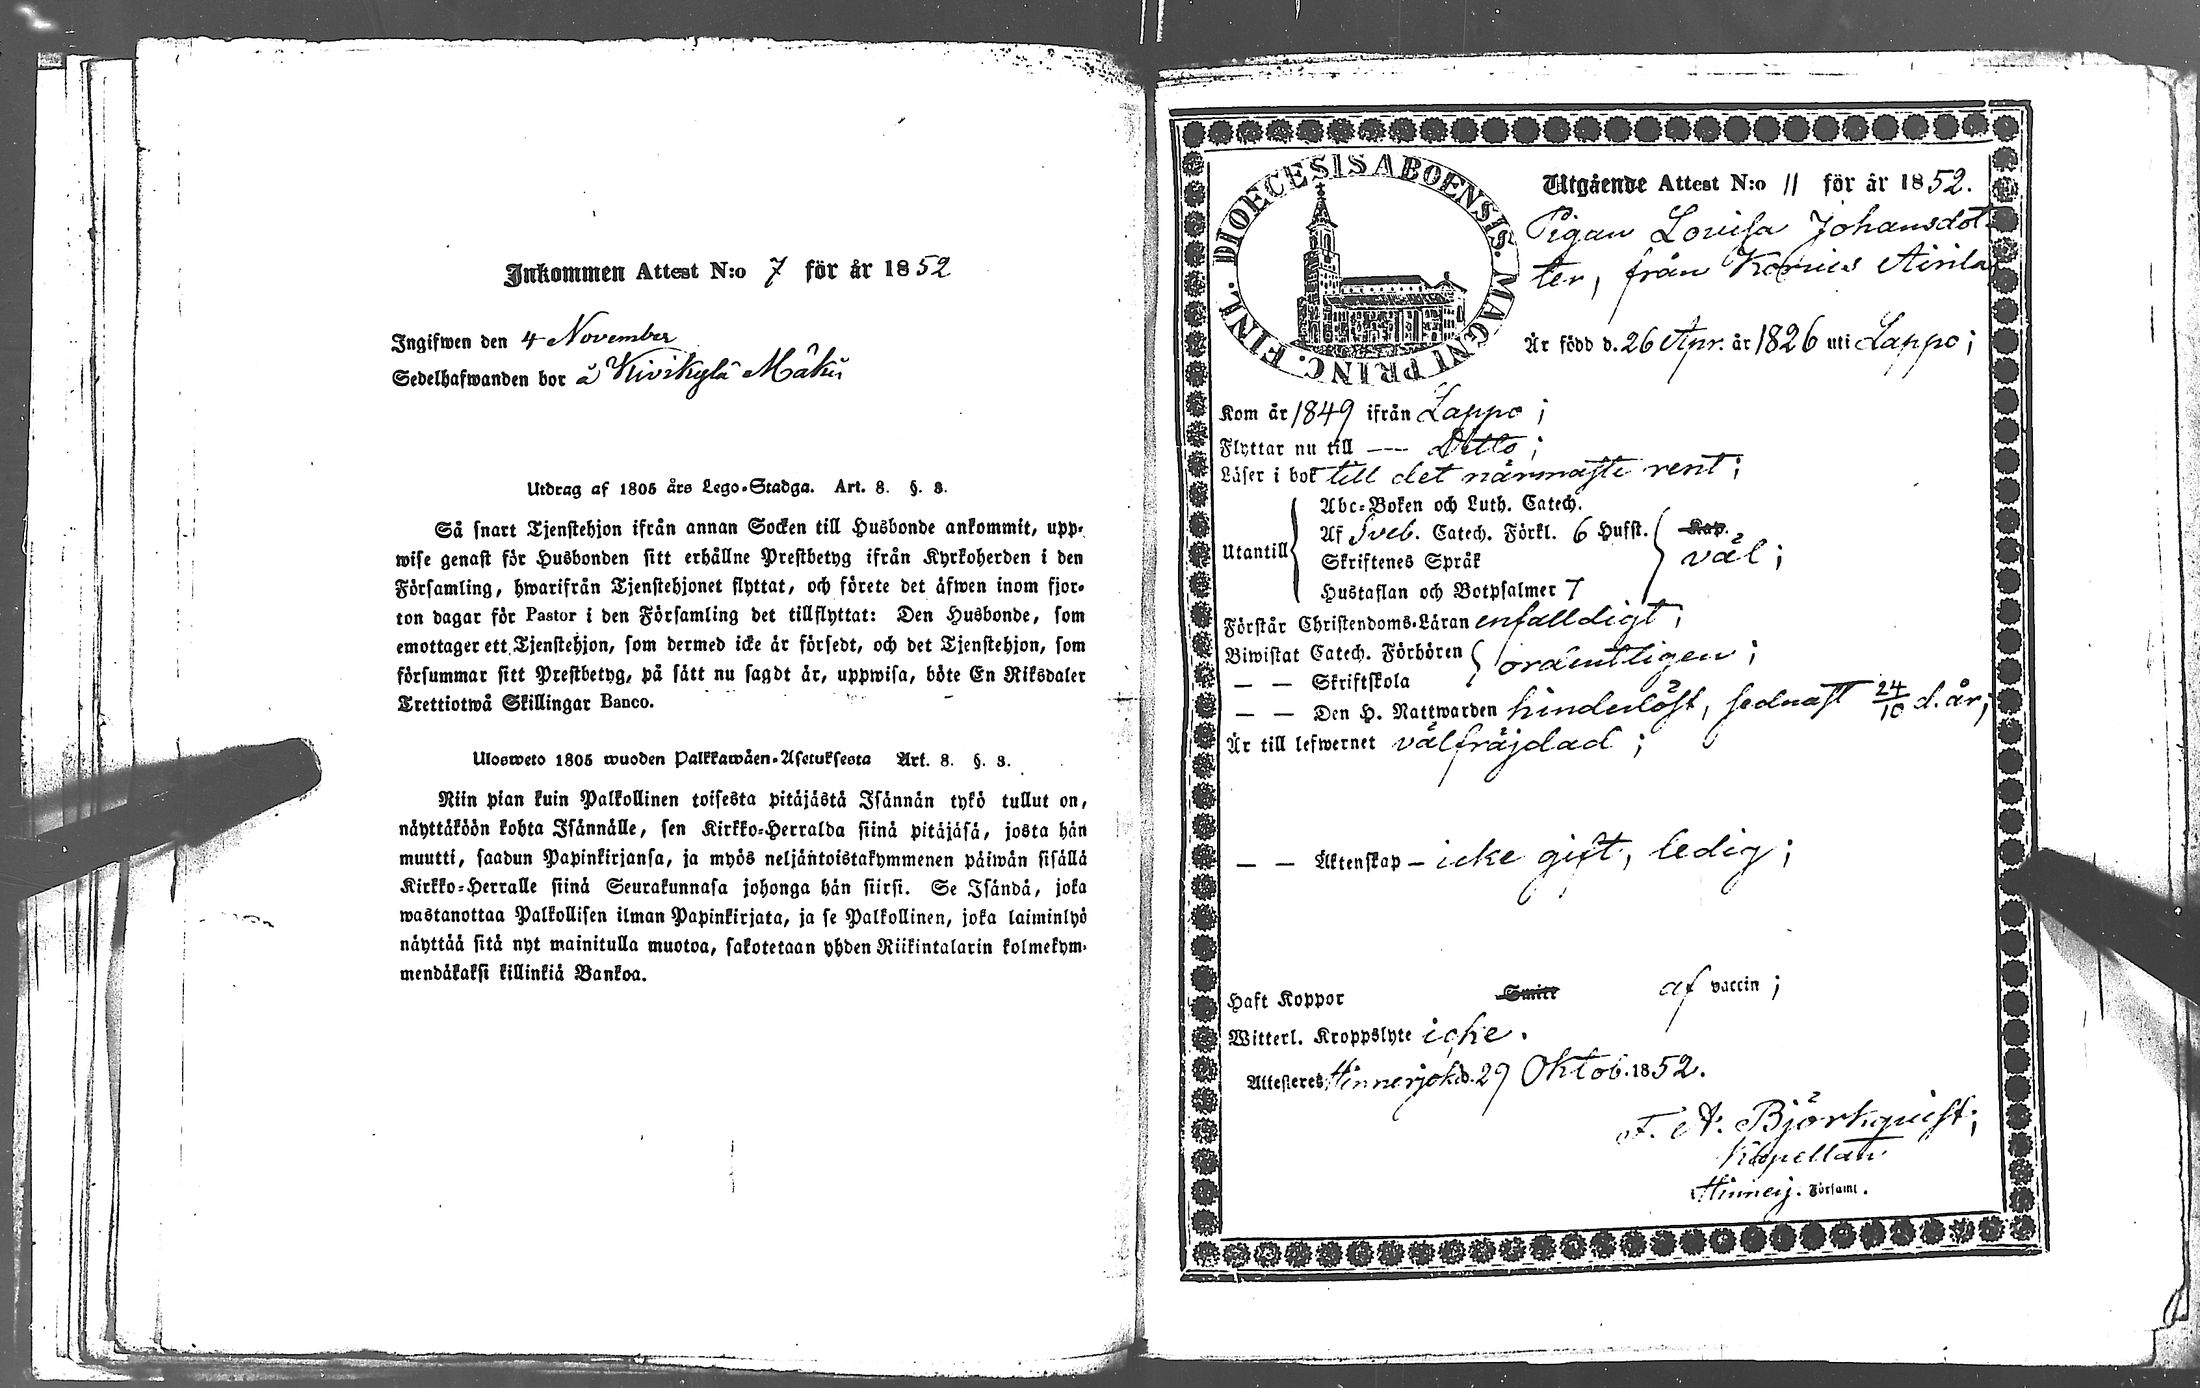 Inkommen Attest N:o 7 för år 1852
Ingifwen den 4 November
Sedelhafwanden bor å Kivikylä Mäki
Utdrag af 1805 års Lego-Stadga. Art. 8. §. 8.
Så snart Tjenstehjon ifrån annan Socken till Husbonde ankommit, upp-
wise genast för Husbonden sitt erhållne Prestbetyg ifrån Kyrkoherden i den
Församling, hwarifrån Tjenstehjonet flyttat, och förete det äfwen inom fjor-
ton dagar för Pastor i den Församling det tillflyttat: Den Husbonde, som
emottager ett Tjenstehjon, som dermed icke är försedt, och det Tjenstehjon, som
försummar sitt Prestbetyg, på sätt nu sagdt är, uppwisa, böte En Riksdaler
Trettiotwå Skillingar Banco.
Ulosweto 1805 wuoden Palkkawäen-Asetuksesta Art. 8. §. 8.
Niin pian kuin Palkollinen toisesta pitäjästä Isännän tykö tullut on,
näyttäköön kohta Isännälle, sen Kirkko-Herralda siinä pitäjäsä, josta hän
muutti, saadun Papinkirjansa, ja myös neljäntoistakymmenen päiwän sisällä
Kirkko-Herralle siinä Seurakunnasa johonga hän siirsi. Se Isändä, joka
wastanottaa Palkollisen ilman Papinkirjata, ja se Palkollinen, joka laiminlyö
näyttää sitä nyt mainitulla muotoa, sakotetaan yhden Riikintalarin kolmekym-
mendäkaksi killinkiä Bankoa.
DIOECESIS ABOENSIS. MAGNI PRINC. FINL.
Utgående Attest N:o 11 för år 1852.
Pigan Lovisa Johansdot-
ter, från Korvis Airila
Är född d. 26 Apr. år 1826 uti Lappo;
Kom år 1849 ifrån Lappo;
Flyttar nu till --- Ditto;
Läser i bok till det närmaste rent;
Abc-Boken och Luth. Catech.
Af Sveb. Catech. Förkl. 6 Hufst. Kap.
Utantill väl;
Skriftenes Språk
Hustaflan och Botpsalmer 7
Förstår Christendoms-Läran enfalldigt;
Biwistat Catech. Förhören ordentligen;
— — Skriftskola
— — Den H. Nattwarden hinderlöst, sednast 24/10 d. år;
Är till lefwernet välfräjdad;
— — Äktenskap - icke gift, ledig;
Haft Koppor af vaccin;
Witterl. Kroppslyte icke.
Attesteres, Hinnerjoki d. 29 Oktob. 1852.
F. A. Björkqvist;
Kapellan
Hinnerj. Församl.